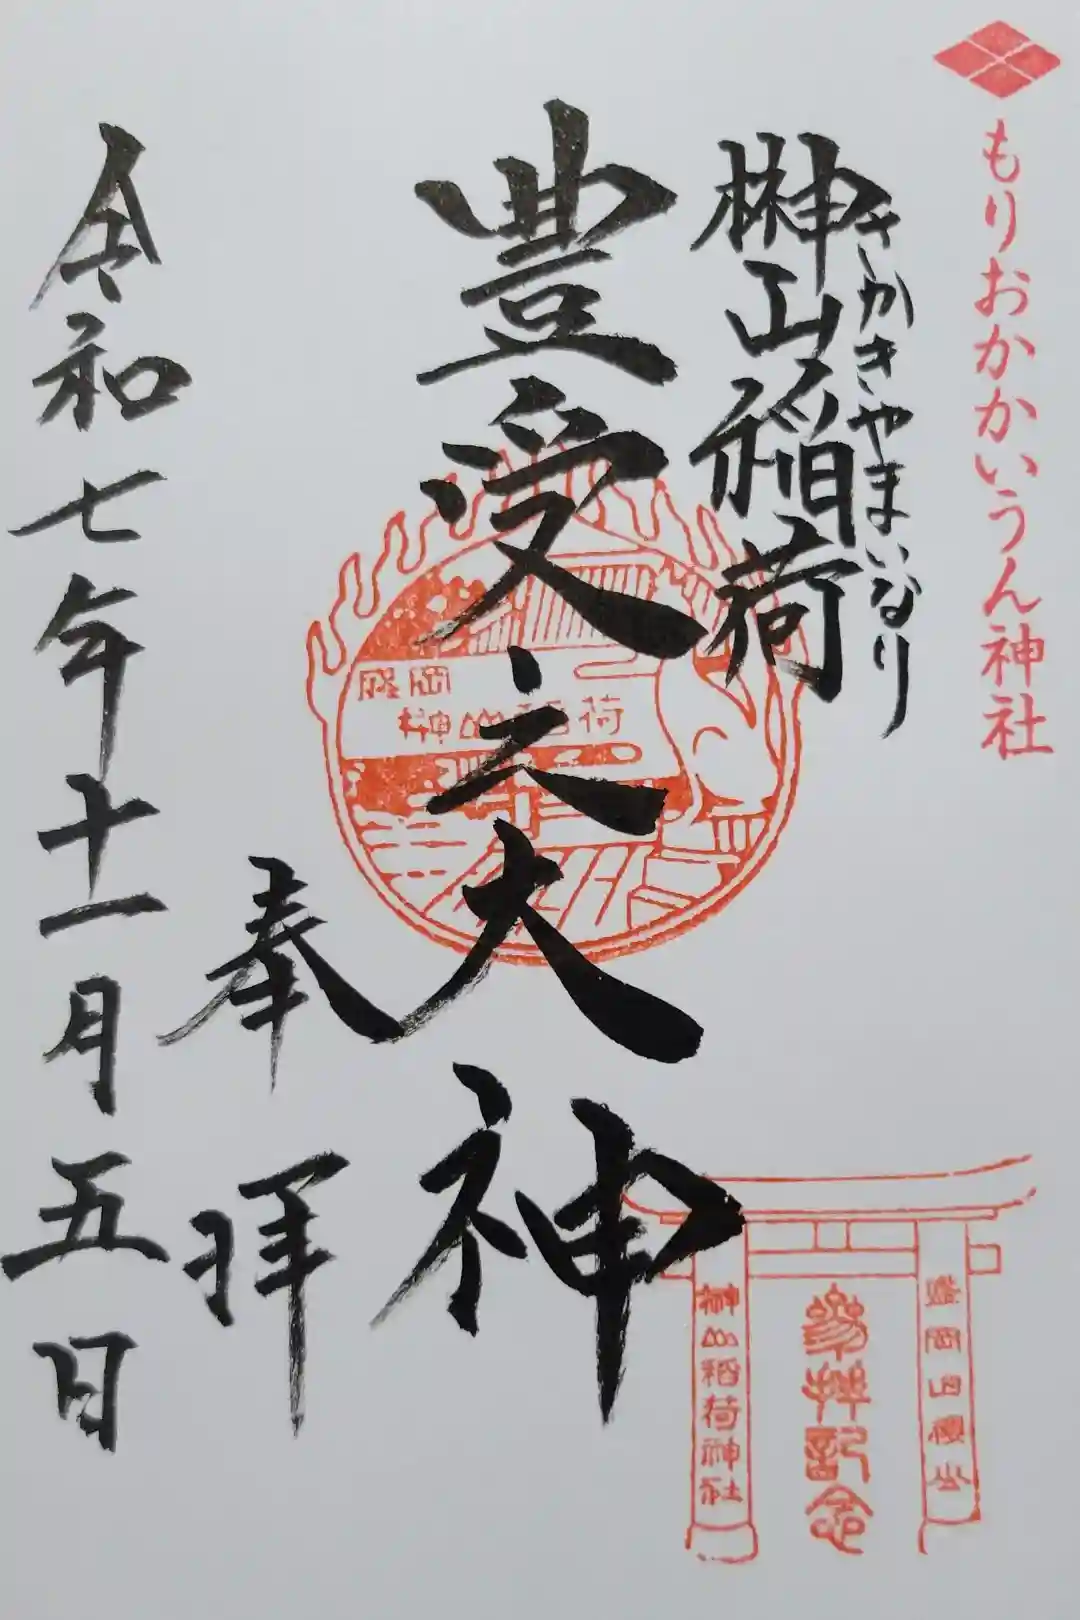 もりおかかいうん神社
榊山稲荷
さかきやまいなり
豊受之大神
奉拝
令和七年十一月五日
盛岡
榊山稲荷
参拝記念
榊山稲荷神社